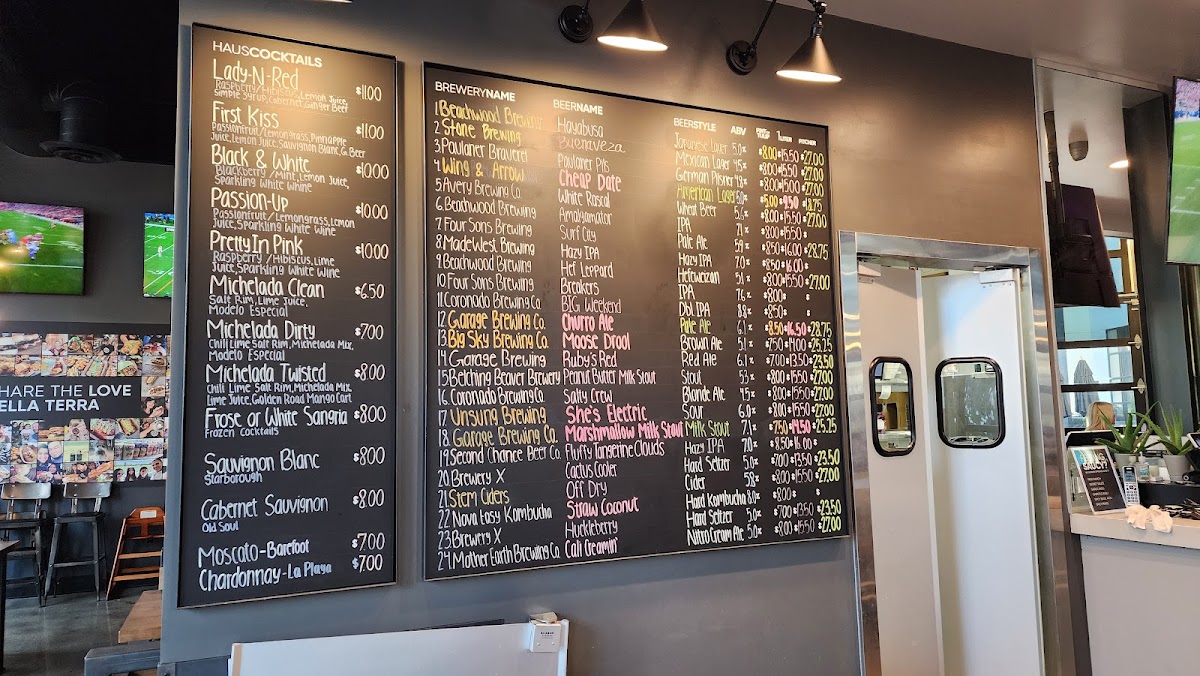 HAUSCOCKTAILS
Lady-N-Red $11.00
Raspberry/Hibiscus, Lemon Juice,
Simple Syrup, Cabernet, Ginger Beef
First Kiss $11.00
Passionfruit/Lemongrass, Pinnapple
Juice, Lemon Juice, Sauvignon Blanc, G. Beer
Black & White $10.00
Blackberry/Mint, Lemon Juice,
Sparkling White Whine
Passion-Up $10.00
Passionfruit/Lemongrass, Lemon
Juice, Sparkling White Wine
Pretty In Pink $10.00
Raspberry/Hibiscus, Lime
Juice, Sparkling White Wine
Michelada Clean $6.50
Salt Rim, Lime Juice,
Modelo Especial
Michelada Dirty $7.00
Chili Lime Salt Rim, Michelada Mix,
Modelo Especial
Michelada Twisted $8.00
Chili Lime Salt Rim, Michelada Mix,
Lime Juice, Golden Road Mango Cart
Frose or White Sangria $8.00
Frozen Cocktails
Sauvignon Blanc $8.00
Starborough
Cabernet Sauvignon $8.00
Old Soul
Moscato-Barefoot $7.00
Chardonnay-La Playa $7.00
BREWERYNAME BEERNAME BEERSTYLE ABV LITER PITCHER
1. Beachwood Brewing Hayabusa Japanese Lager 5.0% $8.00 $15.50 $27.00
2 Stone Brewing Buenaveza Mexican Lager 4.5% $8.00 $15.50 $27.00
3. Paulaner Brauerei Paulaner Pils German Pilsner 4.8% $8.00 $15.00 $27.00
4. Wing & Arrow Cheap Date American Lager 5.0% $5.00 $9.50 $18.75
5. Avery Brewing Co. White Rascal Wheat Beer 5.6% $8.00 $15.50 $27.00
6. Beachwood Brewing Amalgamator IPA 7.1% $8.00 $15.50
7 Four Sons Brewing Surf City Pale Ale 5.9% $8.50 $16.00 $28.75
8 Madewest Brewing Hazy IPA Hazy IPA 7.0% $8.50 $16.00
9 Beachwood Brewing Hef Leppard Hefeweizan 5.1% $8.00 $15.50 $27.00
10 Four Sons Brewing Breakers IPA 7.6% $8.00 $
11 Coronado Brewing Co. BIG Weekend Dbl IPA 8.8% $8.50 $
12. Garage Brewing Co. Churro Ale Pale Ale 6.1% $8.50 $16.50 $28.75
13. Big Sky Brewing Co. Moose Drool Brown Ale 5.1% $7.50 $14.00 $25.25
14 Garage Brewing Ruby's Red Red Ale 6.1% $7.00 $13.50 $23.50
15 Belching Beaver Brewery Peanut Butter Milk Stout Stout 5.3% $8.00 $15.50 $27.00
16. Coronado Brewing Co. Salty Crew Blonde Ale 4.5% $8.00 $15.50 $27.00
17 Unsung Brewing She's Electric Sour 6.0% $8.00 $15.50 $27.00
18. Garage Brewing Co. Marshmallow Milk Stout Milk Stout 7.1% $7.50 $14.50 $25.25
19 Second Chance Beer Co. Fluffy Tangerine Clouds Hazy IPA 7.0% $8.50 $16.00 $
20. Brewery X Cactus Cooler Hard Seltzer 5.0% $7.00 $13.50 $23.50
21. Stem Ciders Off Dry Cider 5.8% $8.00 $15.50 $27.00
22 Nova Easy Kombucha Straw Coconut Hard Kombucha 8.0% $8.00 $ $
23. Brewery X Huckleberry Hard Seltzer 5.0% $7.00 $13.50 $23.50
24. Mother Earth Brewing Co. Cali Creamin' Nitro Cream Ale 5.0% $8.00 $15.50 $27.00
SHARE THE LOVE
ELLA TERRA